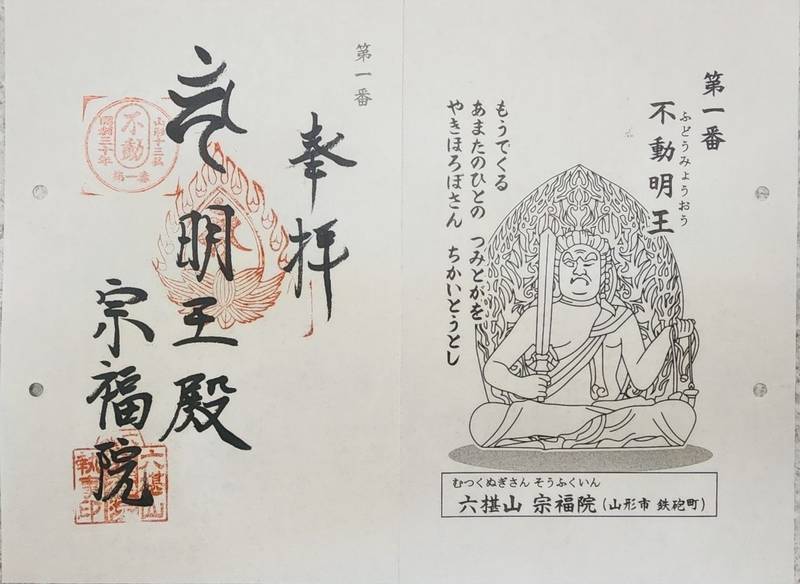 第一番
ふどうみょうおう
不動明王
もうでくる
あまたのひとの つみとがを
やきほろぼさん ちかいとうとし
むつくぬぎさん そうふくいん
六椹山 宗福院 (山形市 鉄砲町)
第一番
奉拝
明王殿
宗福院
山形十三佛
不動
開創三十年
第一番
六椹山